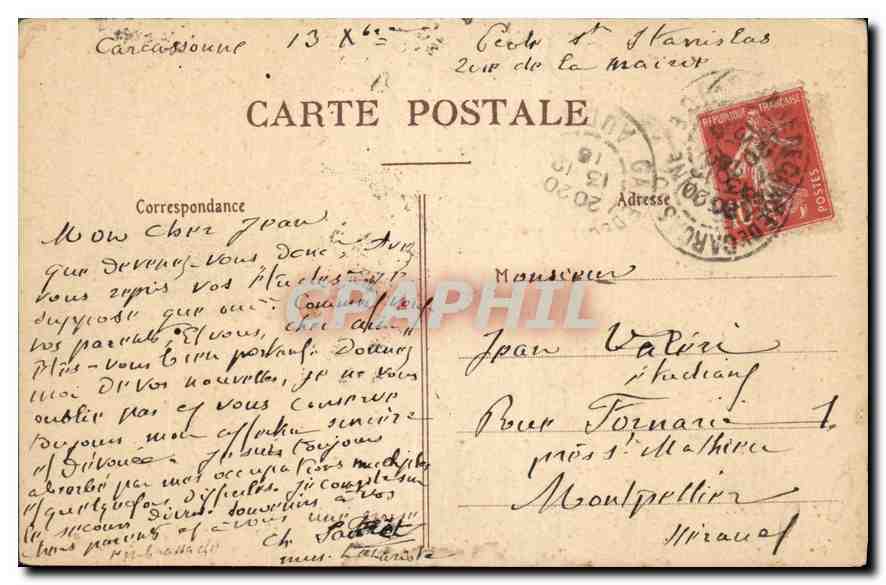 Carcassonne 13 Xbre École St Stanislas
rue de la mairie
CARTE POSTALE
Correspondance
Adresse
REPUBLIQUE FRANÇAISE
POSTES
CARCASSONNE
GARE
AUDE
20
13-12
Mon cher Jean
que devenez-vous donc, Avez
vous repris vos études? Je
suppose que oui. Comment vont
vos parents. Et vous, cher ami,
êtes-vous bien portant. Donnez
moi de vos nouvelles, je ne vous
oublie pas et vous conserve
toujours mon affection sincère
et dévouée. Je suis toujours
absorbé par mes occupations multiples
et quelquefois difficiles. Je compte sur
le secours divin. Souvenirs à vos
chers parents et à vous une
embrassade
Ch.
Monsieur
Jean Valéri
étudiant
Rue Fornarié 1.
près St Mathieu
Montpellier
Hérault
CPAPHIL